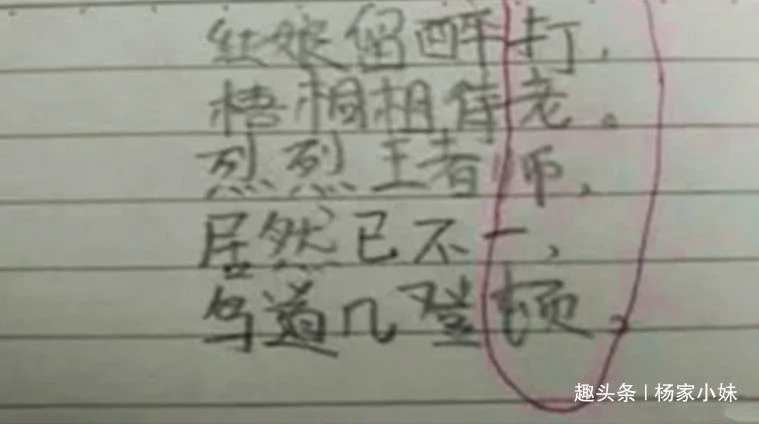 红娘留醉打，
梧桐相待老。
烈烈王者师，
居然已不一，
鸟道几登顿。
趣头条 | 杨家小妹